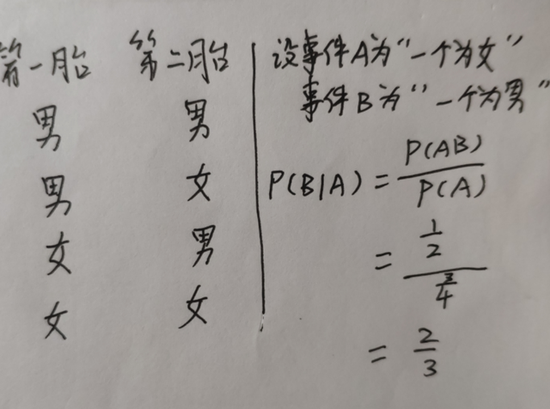 第一胎 第二胎
男 男
男 女
女 男
女 女
设事件A为“一个为女”
事件B为“一个为男”
P(B|A) = P(AB) / P(A)
= 1/2 / 3/4
= 2/3